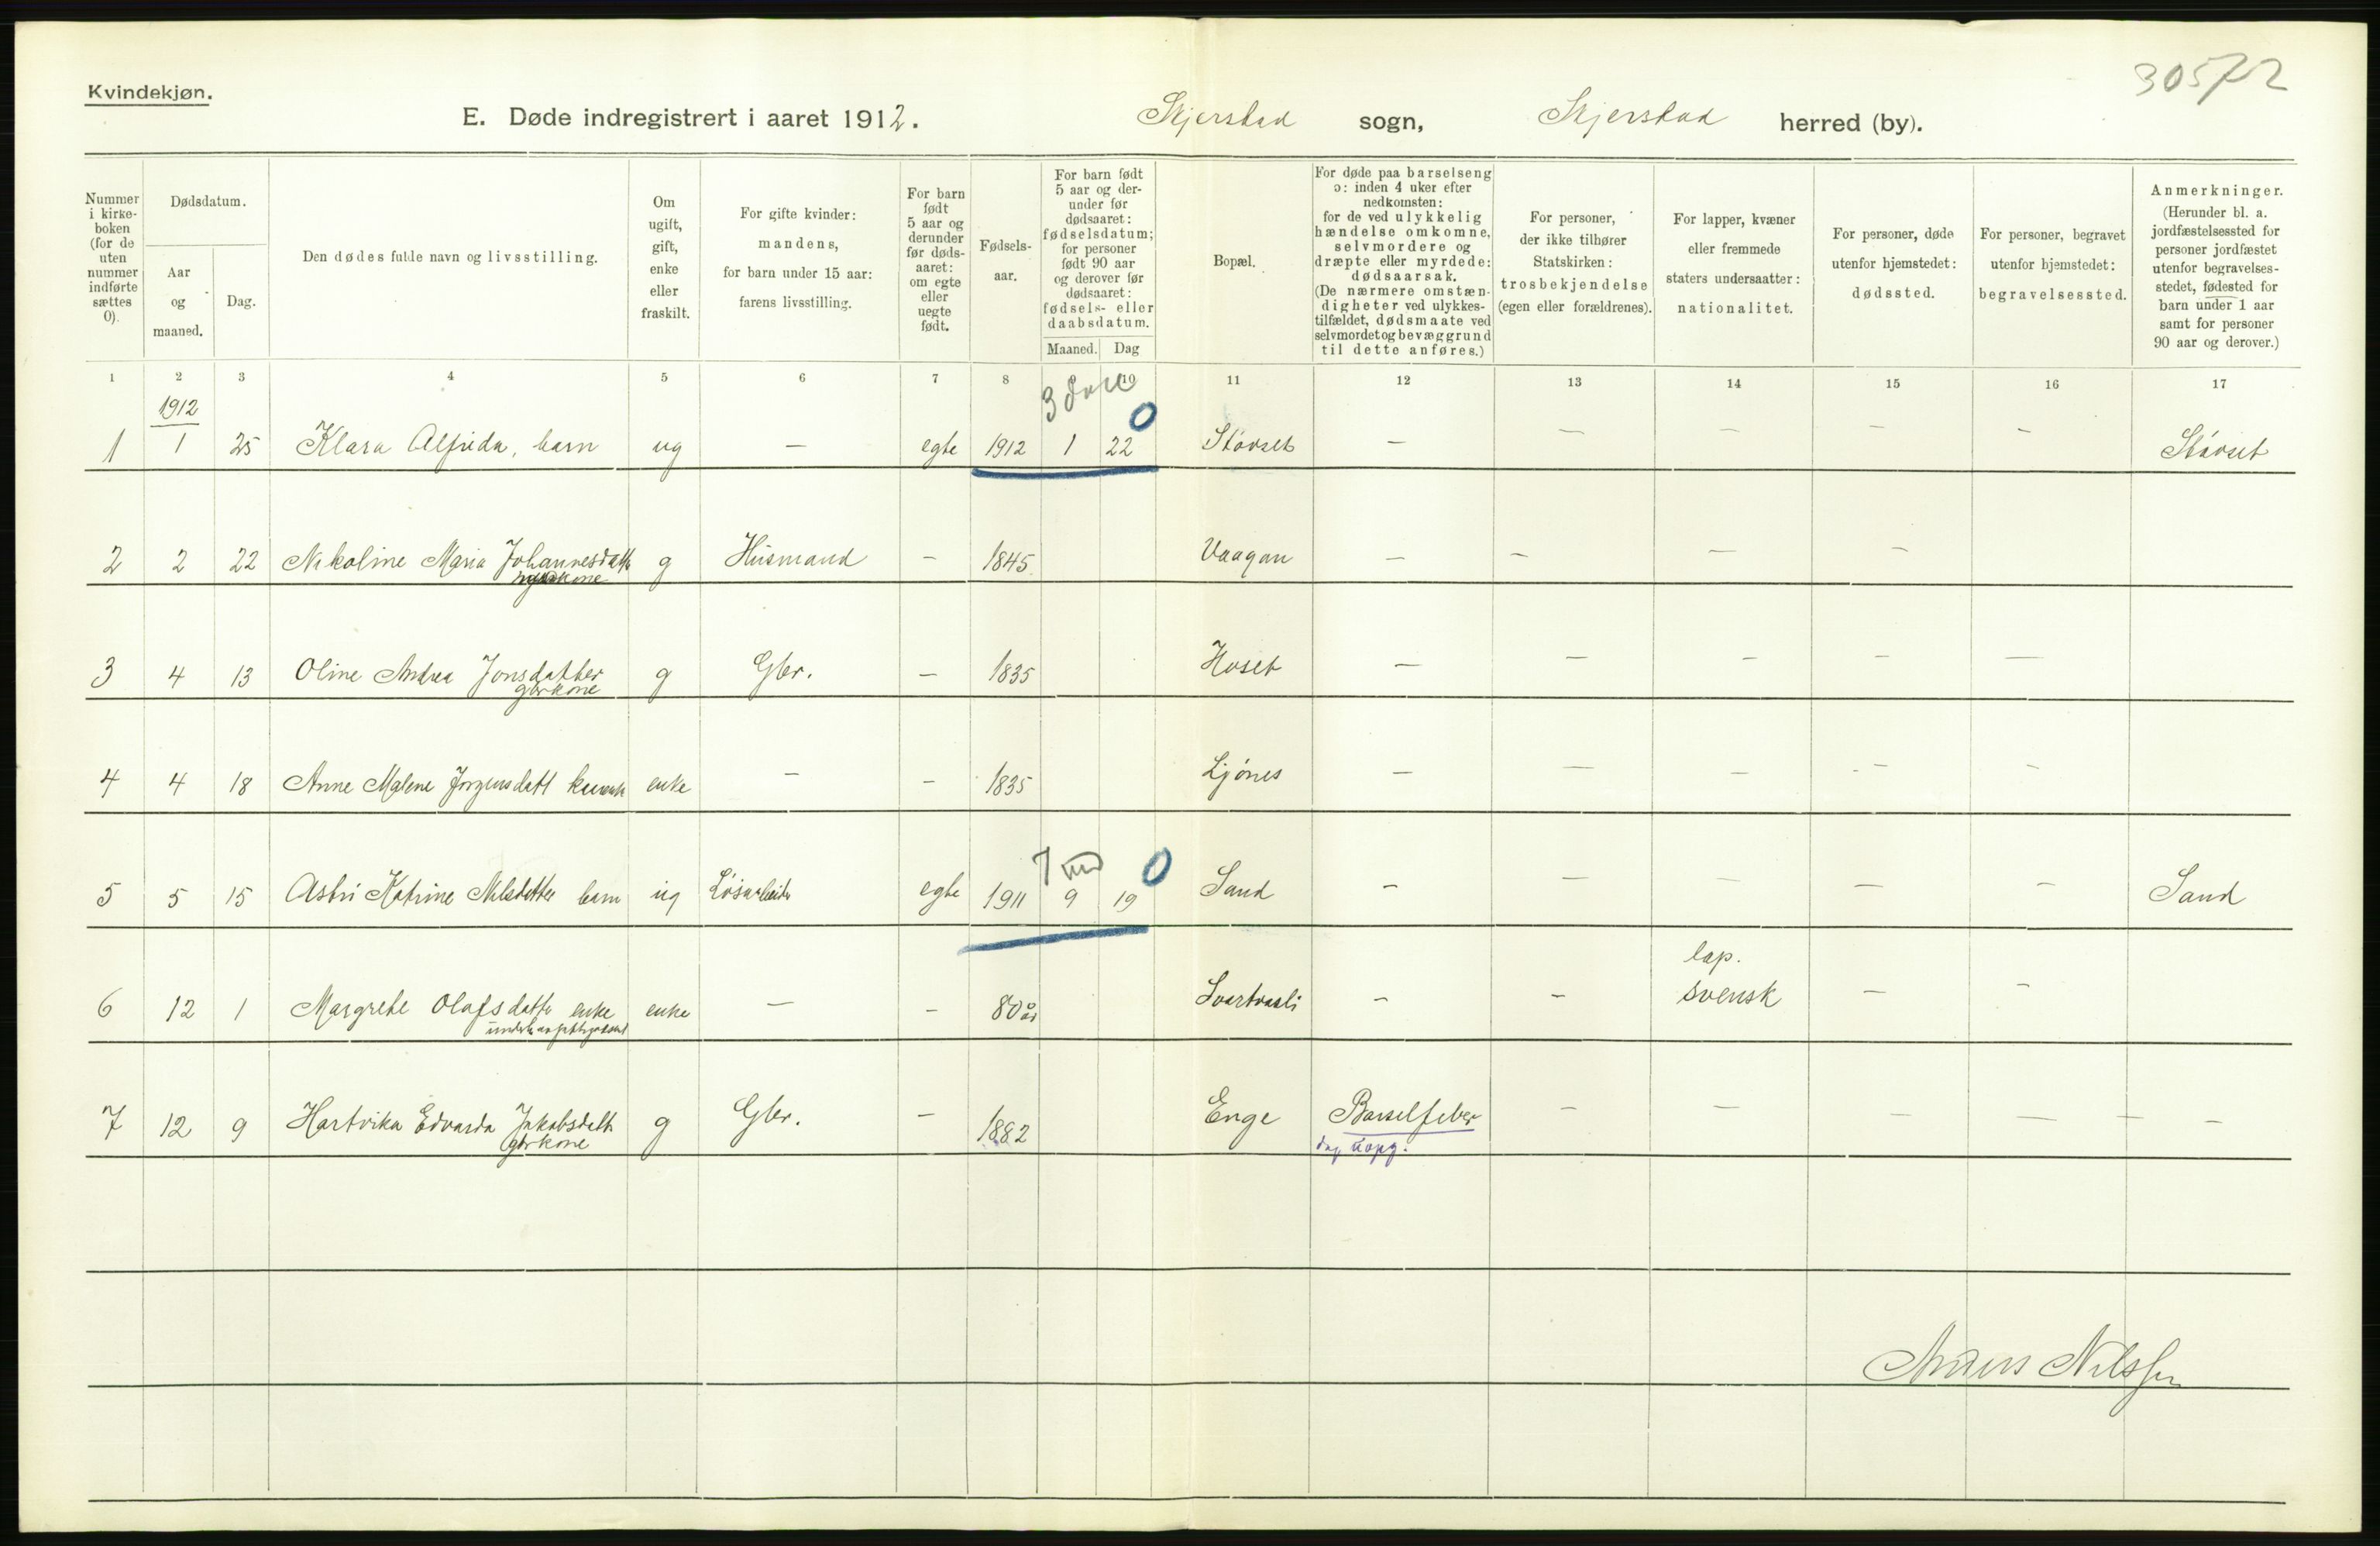 Kvindekjøn.
30572
E. Døde indregistrert i aaret 1912. Skjerstad sogn, Skjerstad herred (by).
Nummer i kirke- boken (for de uten nummer indførte sættes 0).
Dødsdatum.
Aar og maaned.
Dag.
Den dødes fulde navn og livsstilling.
Om ugift, gift, enke eller fraskilt.
For gifte kvinder: mandens, for barn under 15 aar: farens livsstilling.
For barn født 5 aar og derunder før døds- aaret: om egte eller uegte født.
Fødsels- aar.
For barn født 5 aar og der- under før dødsaaret: fødselsdatum; for personer født 90 aar og derover før dødsaaret: fødsels- eller daabsdatum.
Maaned. Dag
Bopæl.
For døde paa barselseng ɔ: inden 4 uker efter nedkomsten: for de ved ulykkelig hændelse omkomne, selvmordere og dræpte eller myrdede: dødsaarsak. (De nærmere omstæn- digheter ved ulykkes- tilfældet, dødsmaate ved selvmord et og bevæggrund til dette anføres.)
For personer, der ikke tilhører Statskirken: trosbekjendelse (egen eller forældrenes).
For lapper, kvæner eller fremmede staters undersaatter: nationalitet.
For personer, døde utenfor hjemstedet: dødssted.
For personer, begravet utenfor hjemstedet: begravelsessted.
Anmerkninger. (Herunder bl. a. jordfæstelsessted for personer jordfæstet utenfor begravelses- stedet, fødested for barn under 1 aar samt for personer 90 aar og derover.)
1 2 3 4 5 6 7 8 10 11 12 13 14 15 16 17
1912
3 0
1 1 25 Klara Alfrida, barn ug — egte 1912 1 22 Støvset — — — — — Støvset
2 2 22 Nikoline Maria Johannesdatt g Husmand — 1845 Vaagan — — — —
3 4 13 Oline Andrea Jonsdatter g Gbr. — 1835 Hoset — — — — —
gbrkone
4 4 18 Anne Malene Jørgensdatt enke — — 1835 Ljønes — — — — —
7 md 0
5 5 15 Astri Katrine Nilsdatter barn ug Løsarbeider egte 1911 9 19 Sand — — — — — Sand
lap.
6 12 1 Margrete Olafsdatter enke enke — — 80 år Svartvasli — — svensk — —
7 12 9 Hartvika Edvarda Jakobsdatt g Gbr. — 1882 Enge Barselfeber — — — — — —
gbrkone
dag uopg.
Anders Nilssen